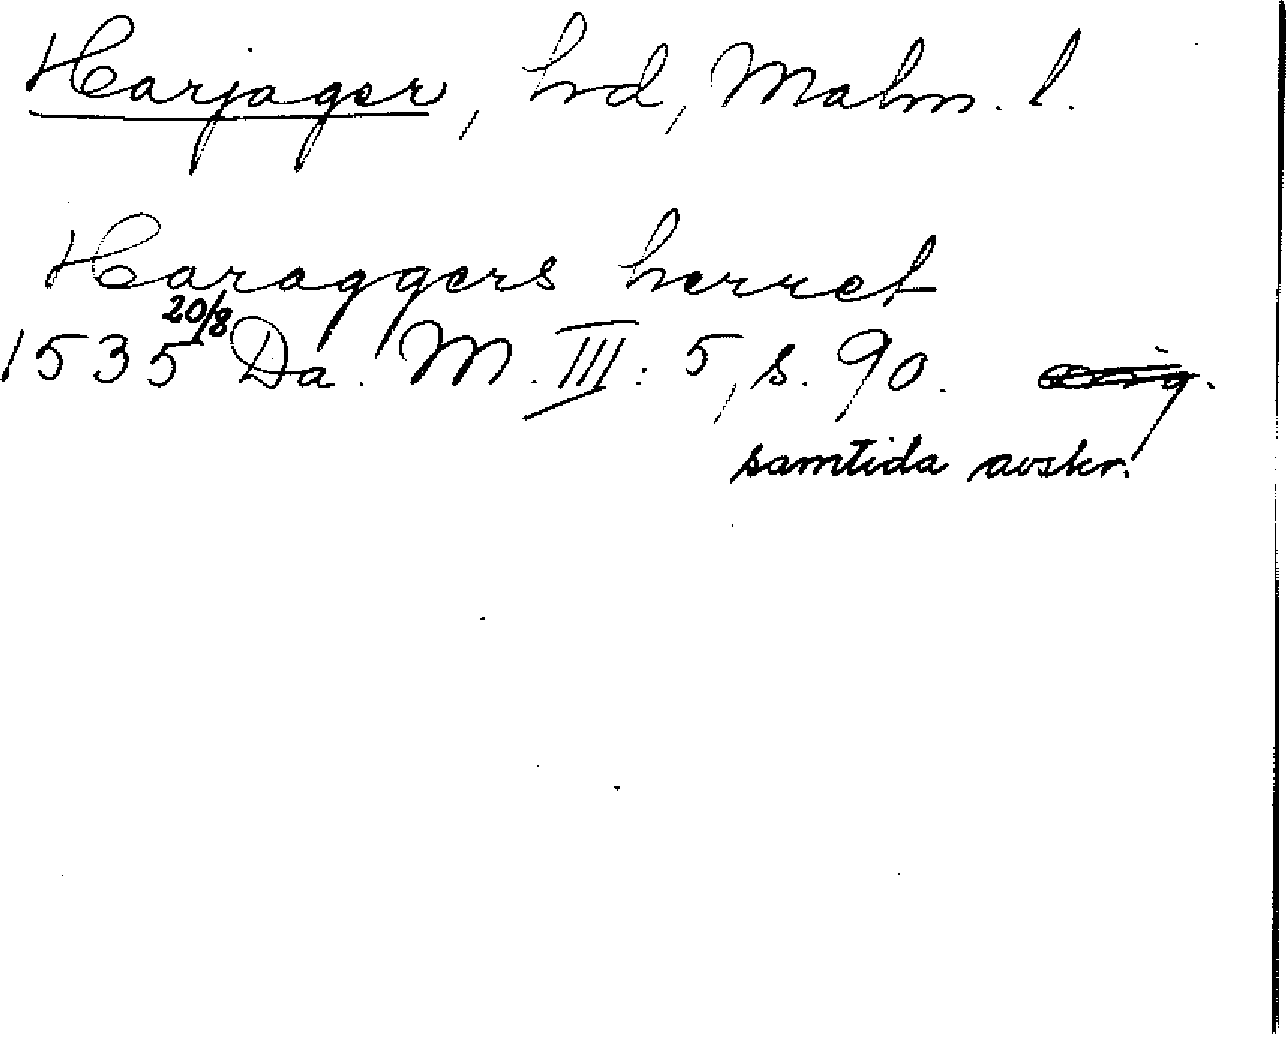 Harjager, hd, Malm. l.
Haraggers herret
1535 20/8 Da. M. III: 5, s. 90.
samtida avskr.